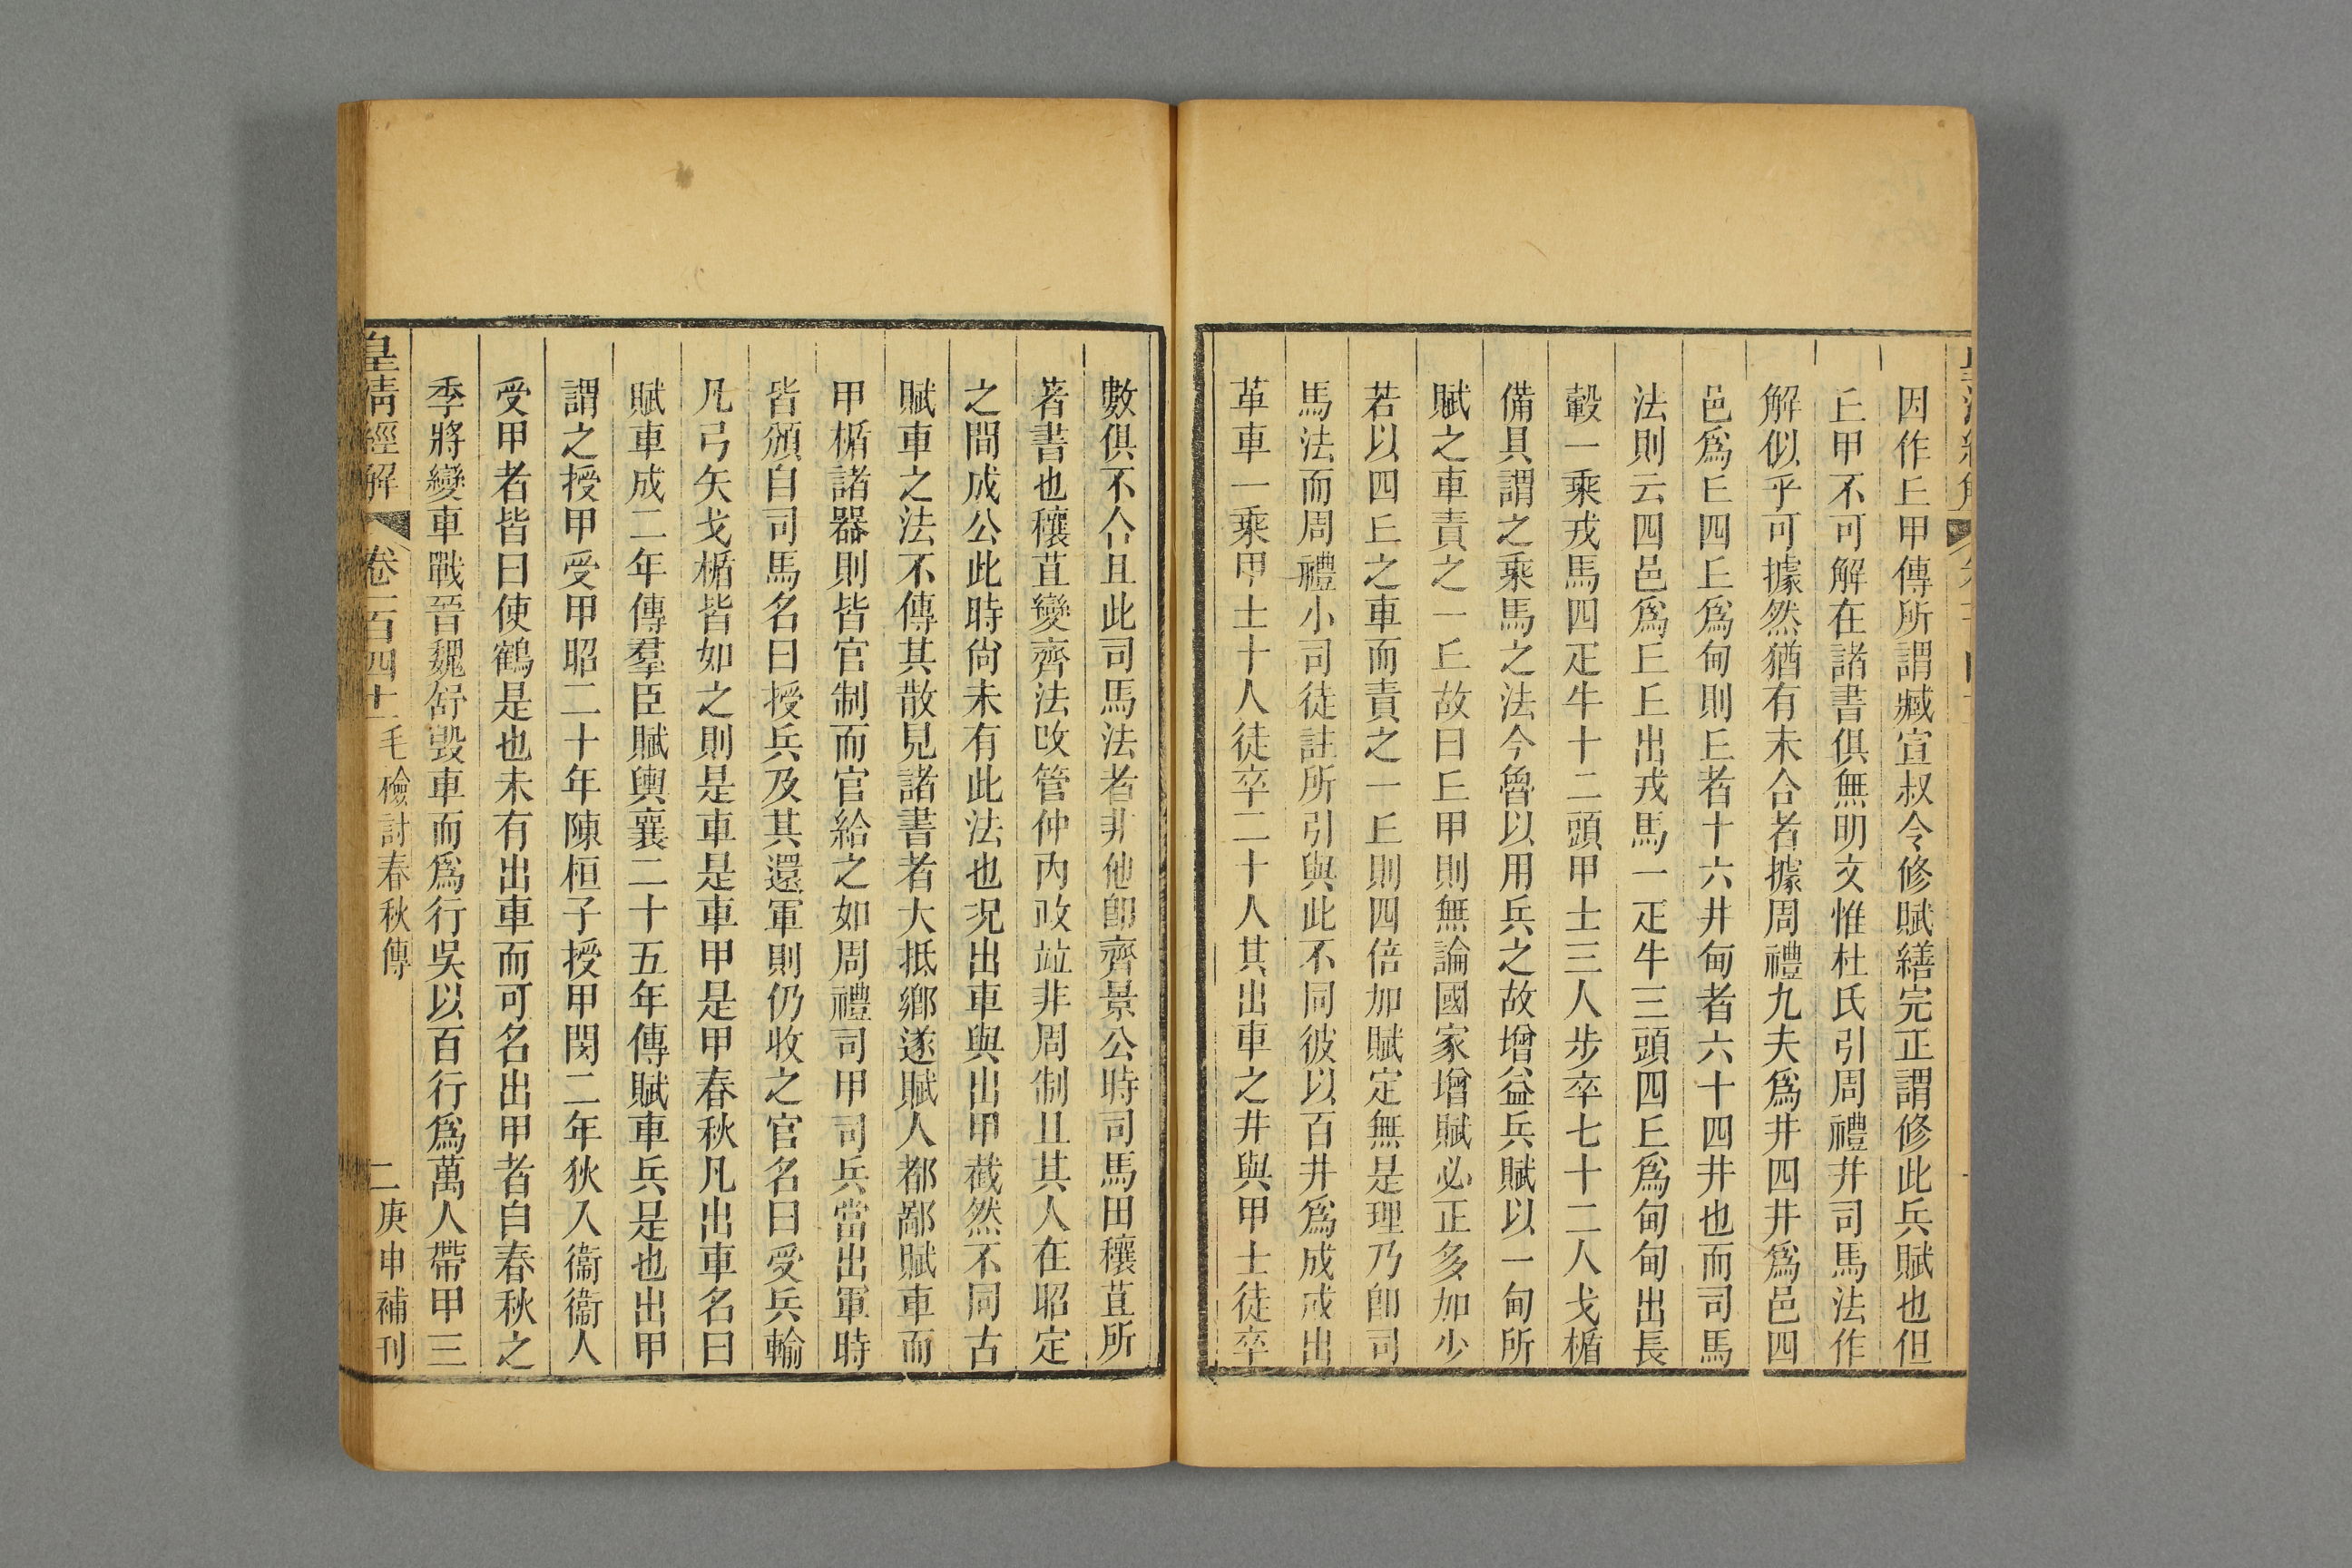 因作𠀉甲傳所謂臧宣叔令修賦繕完正謂修此兵賦也但
𠀉甲不可解在諸書俱無明文惟杜氏引周禮井司馬法作
解似乎可據然猶有未合者據周禮九夫爲井四井爲邑四
邑爲𠀉四𠀉爲甸則𠀉者十六井甸者六十四井也而司馬
法則云四邑爲𠀉𠀉出戎馬一疋牛三頭四𠀉爲甸甸出長
轂一乘戎馬四疋牛十二頭甲士三人步卒七十二人戈楯
備具謂之乘馬之法今魯以用兵之故增益兵賦以一甸所
賦之車責之一𠀉故曰𠀉甲則無論國家增賦必正多加少
若以四𠀉之車而責之一𠀉則四倍加賦定無是理乃卽司
馬法而周禮小司徒註所引與此不同彼以百井爲成成出
革車一乘甲士十人徒卒二十人其出車之井與甲士徒卒
數俱不合且此司馬法者非他卽齊景公時司馬田穰苴所
著書也穰苴變齊法改管仲內政竝非周制且其人在昭定
之間成公此時尙未有此法也況出車與出甲截然不同古
賦車之法不傳其散見諸書者大抵鄕遂賦人都鄙賦車而
甲楯諸器則皆官制而官給之如周禮司甲司兵當出軍時
皆頒自司馬名曰授兵及其還軍則仍收之官名曰受兵輸
凡弓矢戈楯皆如之則是車是車甲是甲春秋凡出車名曰
賦車成二年傳羣臣賦輿襄二十五年傳賦車兵是也出甲
謂之授甲受甲昭二十年陳桓子授甲閔二年狄入衞衞人
受甲者皆曰使鶴是也未有出車而可名出甲者自春秋之
季將變車戰晉魏舒毀車而爲行吳以百行爲萬人帶甲三
皇淸經解 卷一百四十一 毛檢討春秋傳 二 庚申補刊